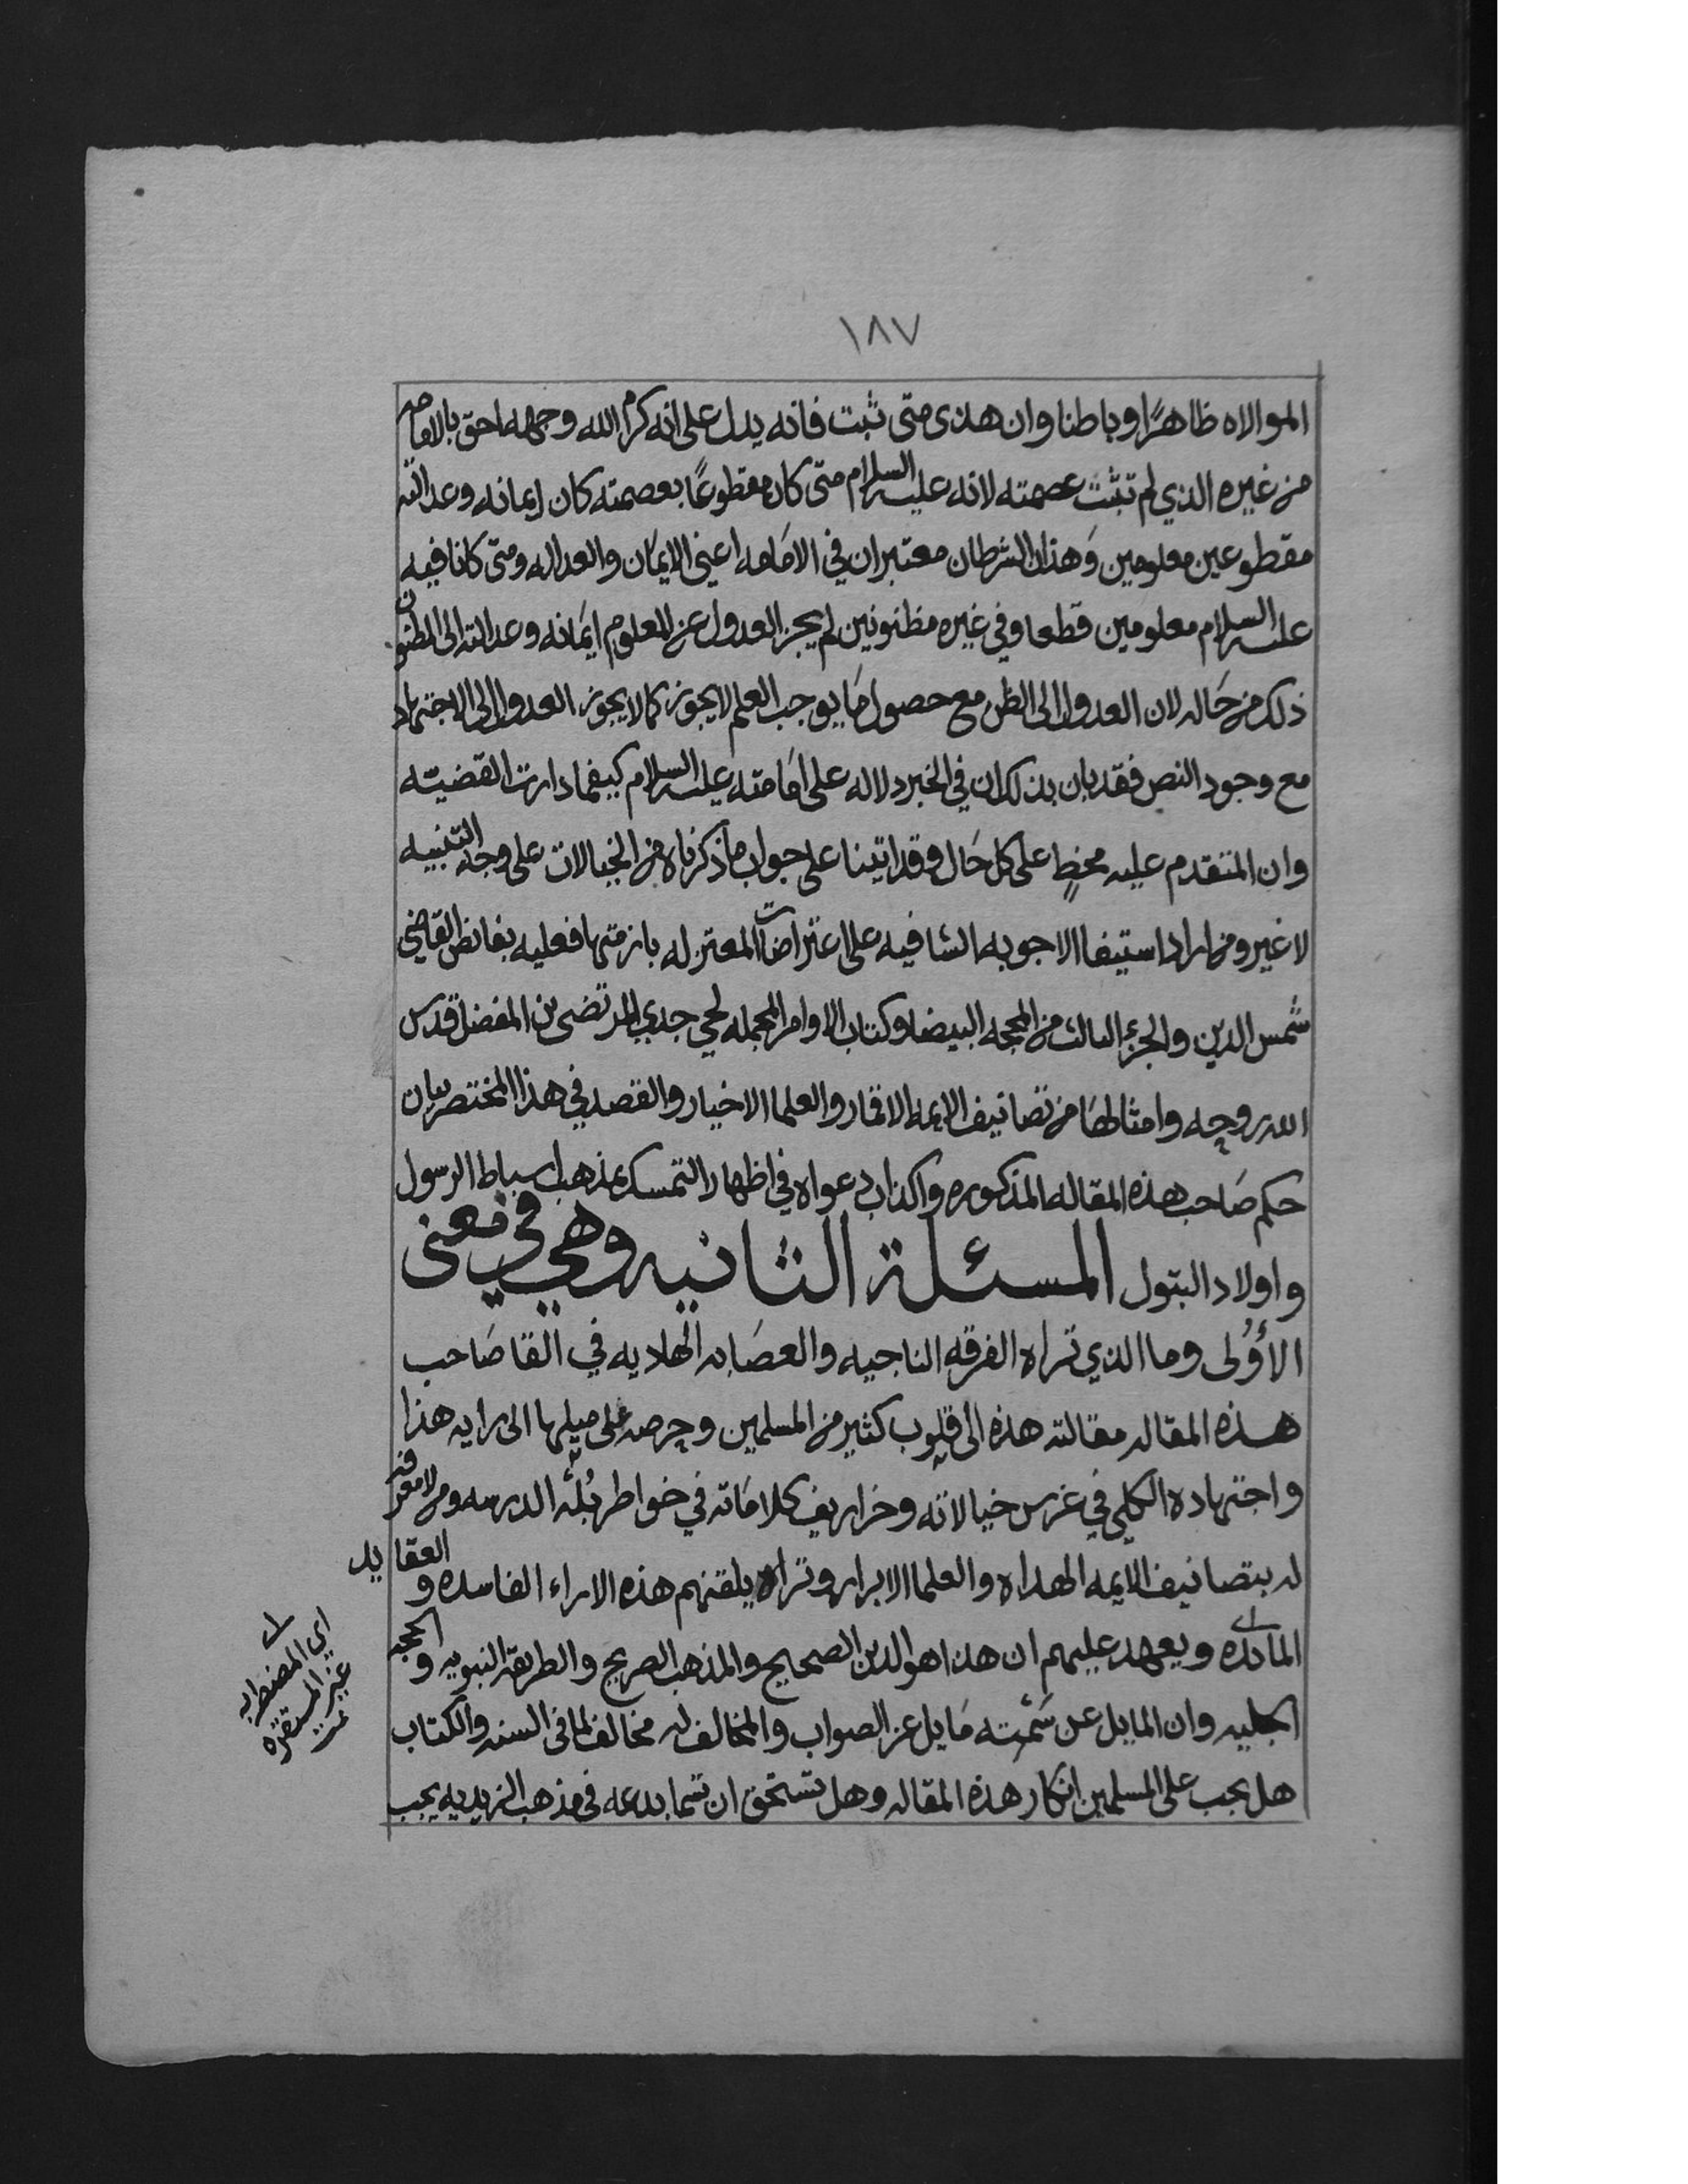 ١٨٧
الموالاه ظاهرًا وباطنا وان هذى متى ثبت فانه يدل على انه كرم الله وجهه احق بالامامه
من غيره الذي لم تثبت عصمته لانه عليه السلام متى كان مقطوعًا بعصمته كان ايمانه وعدالته
مقطوعين معلومين وَهذان الشرطان معتبران في الامَامه اعني الايمَان والعداله ومتى كانا فيه
عليه السلام معلومين قطعا وفي غيره مظنونين لم يجز العدول عن المعلوم ايمَانه وعدالته الى المظنون
ذلك من حَاله لان العدول الى الظن مع حصول مَا يوجب العلم لا يجوز كما لا يجوز العدول الى الاجتهاد
مع وجود النص فقد بان بذلك ان في الخبر دلاله على امَامته عليه السلام كيفما دارت القضيته
وان المتقدم عليه مخطٍ على كل حَال وقد اتينا على جواب ما ذكرناه من الخيالات على وجه التنبيه
لا غير ومن اراد استيفا الاجوبه الشافيه على اعتراضات المعتزله بازمتها فعليه بغائض القاضي
شمس الدين والجزء الثالث من المحجه البيضا وكتاب الاوامر المجمله لحي جدي المرتضى بن المفضل قدس
الله روحه وامثالهَا من تصانيف الايمه الاقمار والعلما الاخيار والقصد في هذا المختصر بيان
حكم صَاحب هذه المقاله المذكوره واكذاب دعواه في اظهار التمسك بمذهب اسباط الرسول
واولاد البتول المسئلة الثانيه وهي في معنى
الأوُلى وما الذي تراه الفرقه الناجيه والعصَابه الهاديه في القا صَاحب
هذه المقاله مقالته هذه الى قلوب كثير من المسلمين وحرصه على ميلها الى رايه هذا
واجتهاده الكلي في غرس خيالاته وخراريف كلامَاته في خواطر بُلْه الدرسه ومن لا معرفه
له بتصانيف الايمه الهداه والعلما الابرار وتراه يلقنهم هذه الاراء الفاسده و العقايد
المائده ويعهد عليهم ان هذا هو الدين الصحيح والمذهب الصريح والطريقه النبويه و الحجه
الجليه وان المايل عن سَمْته مَايل عن الصواب والمخالف له مخالف لما في السنه والكتاب
هل يجب على المسلمين انكار هذه المقاله وهل تستحق ان تسما بدعه في مذهب الزيديه يجب
اي المضطربه
غير المستقره